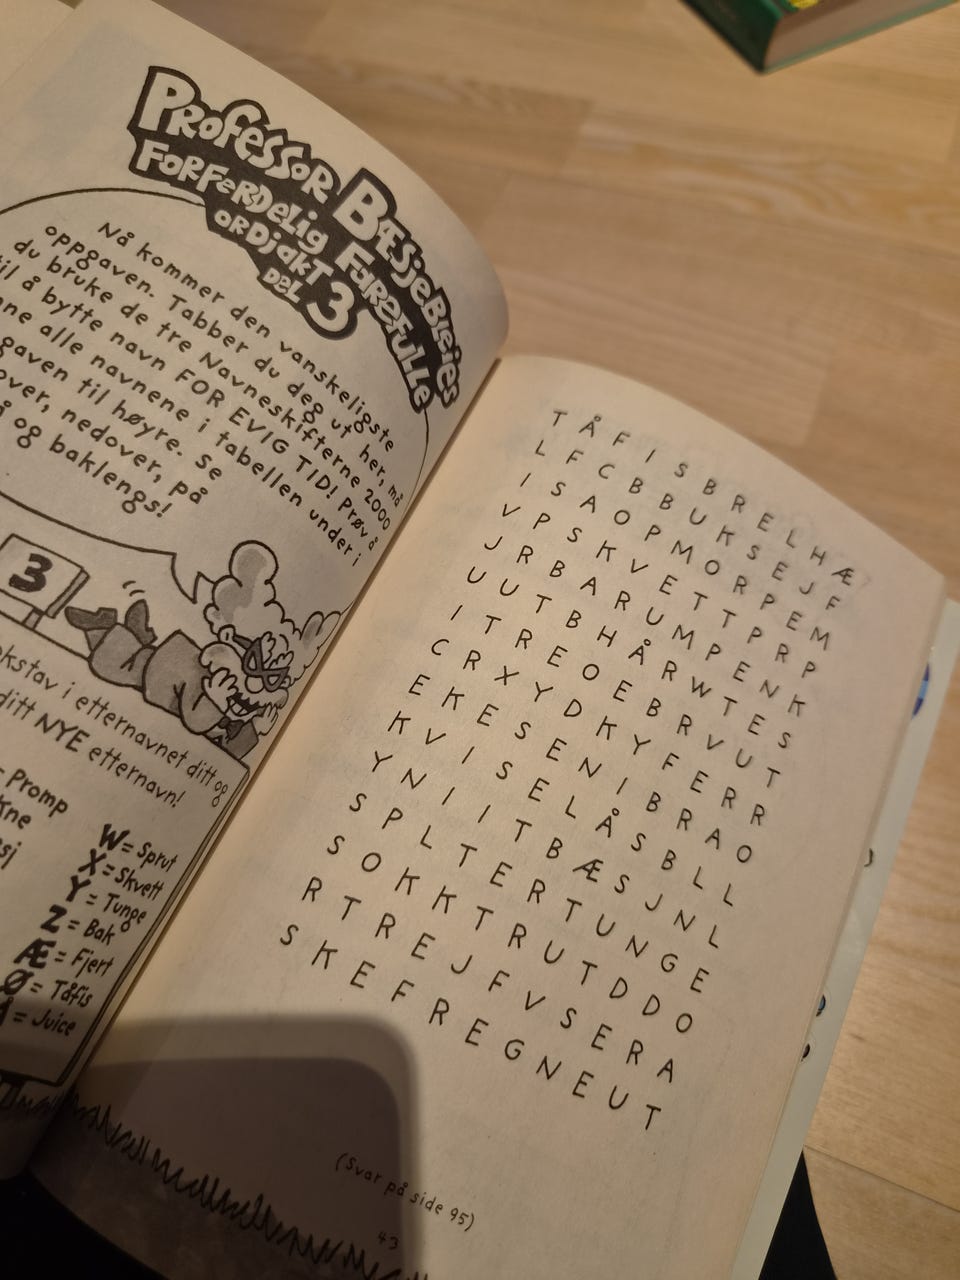 PROFESSOR BÆSJEBLEIES
FORFERDELIG FAREFULLE
ORDJAKT
DEL 3
Nå kommer den vanskeligste
oppgaven. Tabber du deg ut her, må
du bruke de tre Navneskifterne 2000
til å bytte navn FOR EVIG TID! Prøv å
alle navnene i tabellen under i
til høyre. Se
nedover, på
og baklengs!
3
i etternavnet ditt og
ditt NYE etternavn!
= Promp
W = Sprut
X = Skvett
Y = Tunge
Z = Bak
Æ = Fjert
Ø = Tåfis
Å = Juice
T Å F I S B R E L H Æ
L F C B B U K S E J F
I S A O P M O R P E M
V P S K V E T T P R P
J R B A R U M P E N K
U U T B H Å R W T E S
I T R E O E B R V U T
C R X Y D K Y F E R R
E K E S E N I B R A O
K V I S E L Å S B L L
Y N I I T B Æ S J N L
S P L T E R T U N G E
S O K K T R U T D D O
R T R E J F V S E R A
S K E F R E G N E U T
(Svar på side 95)
43